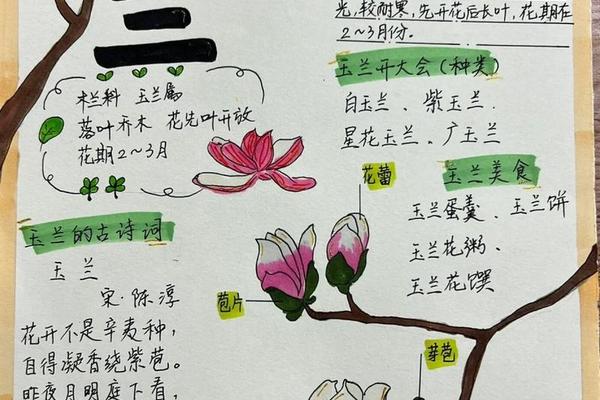 兰
木兰科 玉兰属
落叶乔木 花先叶开放
花期2～3月
玉兰的古诗词
玉兰
宋·陈淳
花开不是辛麦种，
自得凝香绕紫苞。
昨夜月明庭下看，
光,较耐寒,先开花后长叶,花期在
2～3月份。
玉兰开大会（种类）
白玉兰、紫玉兰.
星花玉兰、广玉兰
花蕾
玉兰美食
玉兰蛋羹、玉兰饼
玉兰花粥、
玉兰花馔
苞片
芽苞